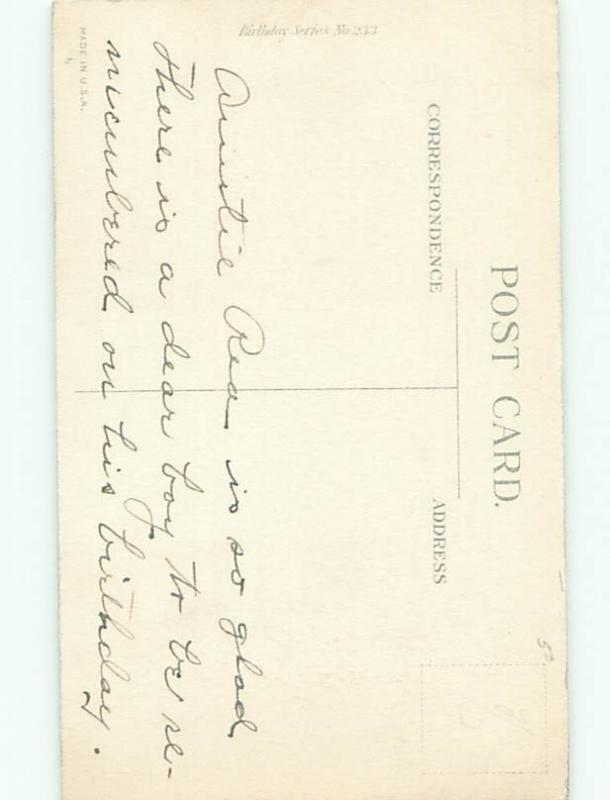 POST CARD.
CORRESPONDENCE
ADDRESS
Birthday Series No 233
Auntie Rea is so glad
there is a dear boy to be re-
membered on his birthday.
MADE IN U.S.A.